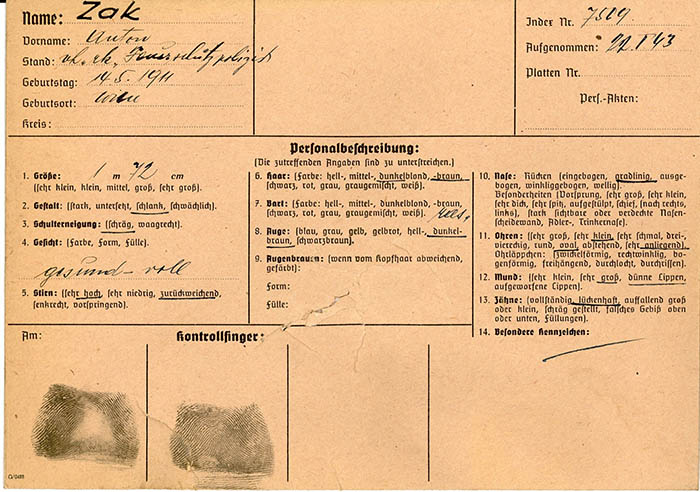 Name: Zak
Vorname: Anton
Stand: vh. ch. Feuerschutzpolizist
Geburtstag: 14.5. 1911
Geburtsort: Wien
Kreis:
Index Nr. 7519
Aufgenommen: 22.I 43
Platten Nr.
Pers.-Akten:
Personalbeschreibung:
(Die zutreffenden Angaben sind zu unterstreichen.)
1. Größe: 1 m 72 cm
(sehr klein, klein, mittel, groß, sehr groß).
2. Gestalt: (stark, untersetzt, schlank, schwächlich).
3. Schulterneigung: (schräg, waagrecht).
4. Gesicht: (Farbe, Form, Fülle).
gesund - voll
5. Stirn: (sehr hoch, sehr niedrig, zurückweichend,
senkrecht, vorspringend).
6. Haar: (Farbe: hell-, mittel-, dunkelblond, -braun,
schwarz, rot, grau, graugemischt, weiß).
7. Bart: (Farbe: hell-, mittel-, dunkelblond, -braun,
schwarz, rot, grau, graugemischt, weiß).
8. Auge: (blau, grau, gelb, gelbrot, hell-, dunkel-
braun, schwarzbraun).
9. Augenbrauen: (wenn vom Kopfhaar abweichend,
gefärbt):
Form:
Fülle:
10. Nase: Rücken (eingebogen, gradlinig, ausge-
bogen, winkliggebogen, wellig).
Besonderheiten (Vorsprung, sehr groß, sehr klein,
sehr dick, sehr spitz, aufgestülpt, schief, (nach rechts,
links), stark sichtbare oder verdeckte Nasen-
scheidewand, Adler-, Trinkernase).
11. Ohren: (sehr groß, sehr klein, sehr schmal, drei-,
viereckig, rund, oval, abstehend, sehr anliegend).
Ohrläppchen: (zwickelförmig, rechtwinklig, bo-
genförmig, freihängend, durchlocht, durchrissen).
12. Mund: (sehr klein, sehr groß, dünne Lippen,
aufgeworfene Lippen).
13. Zähne: (vollständig, lückenhaft, auffallend groß
oder klein, schräg gestellt, falsches Gebiß oben
oder unten, Füllungen).
14. Besondere Kennzeichen:
Am:
Kontrollfinger: